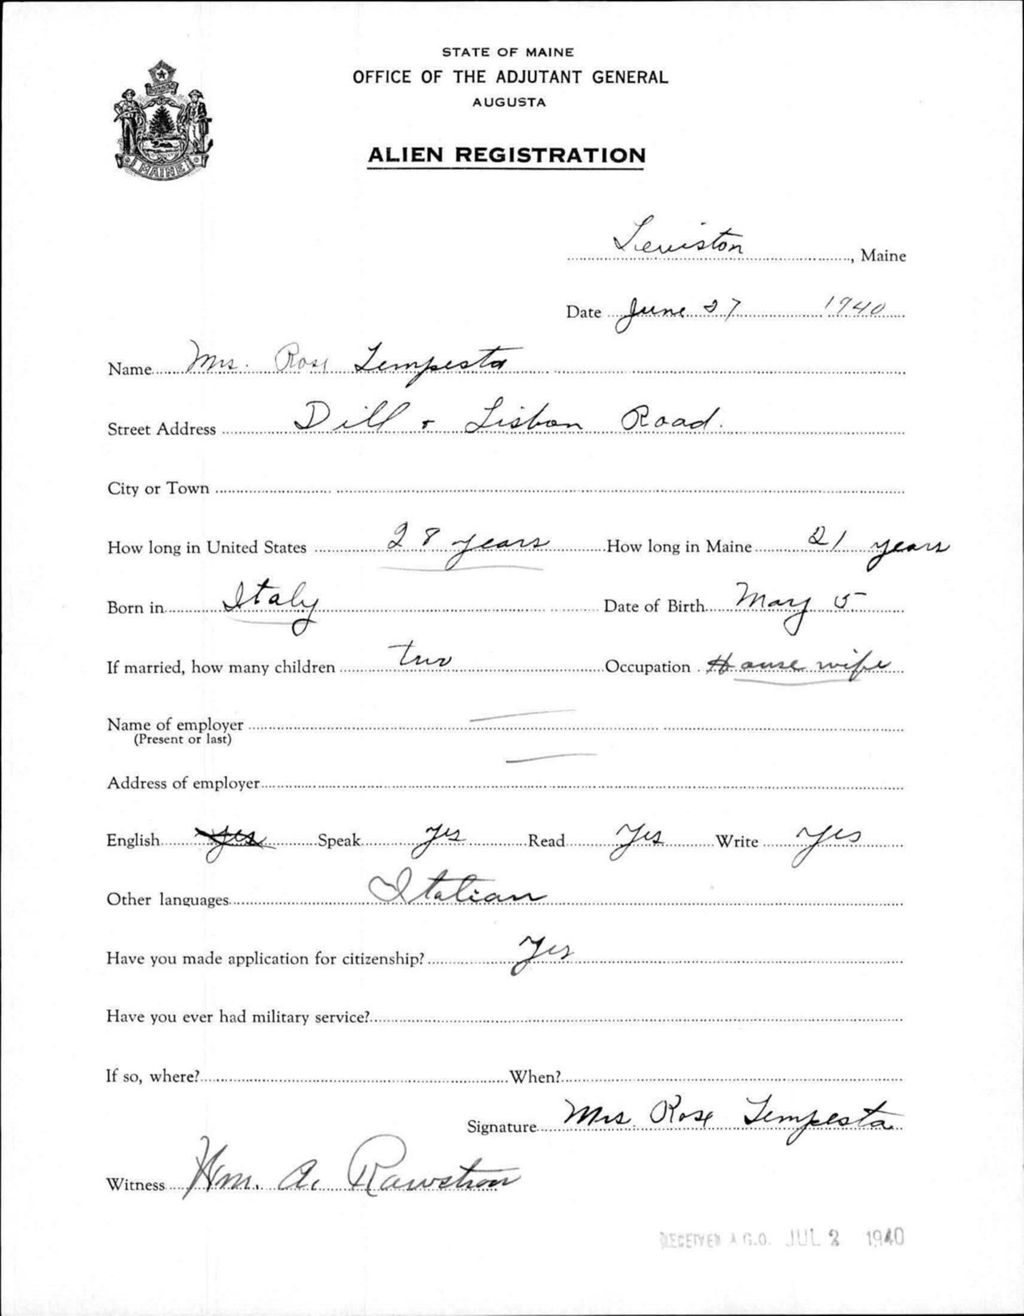 STATE OF MAINE
OFFICE OF THE ADJUTANT GENERAL
AUGUSTA
ALIEN REGISTRATION
MAINE
Lewiston, Maine
Date June 27 1940
Name Mrs. Rose Tempesta
Street Address Dill + Lisbon Road.
City or Town
How long in United States 28 years How long in Maine 21 years
Born in Italy Date of Birth May 5
If married, how many children two Occupation House wife
Name of employer
(Present or last)
Address of employer
English yes Speak yes Read Yes Write yes
Other languages Italian
Have you made application for citizenship? Yes
Have you ever had military service?
If so, where? When?
Signature Mrs. Rose Tempesta
Witness Wm. A. Rawstron
RECEIVED A.G.O. JUL 2 1940